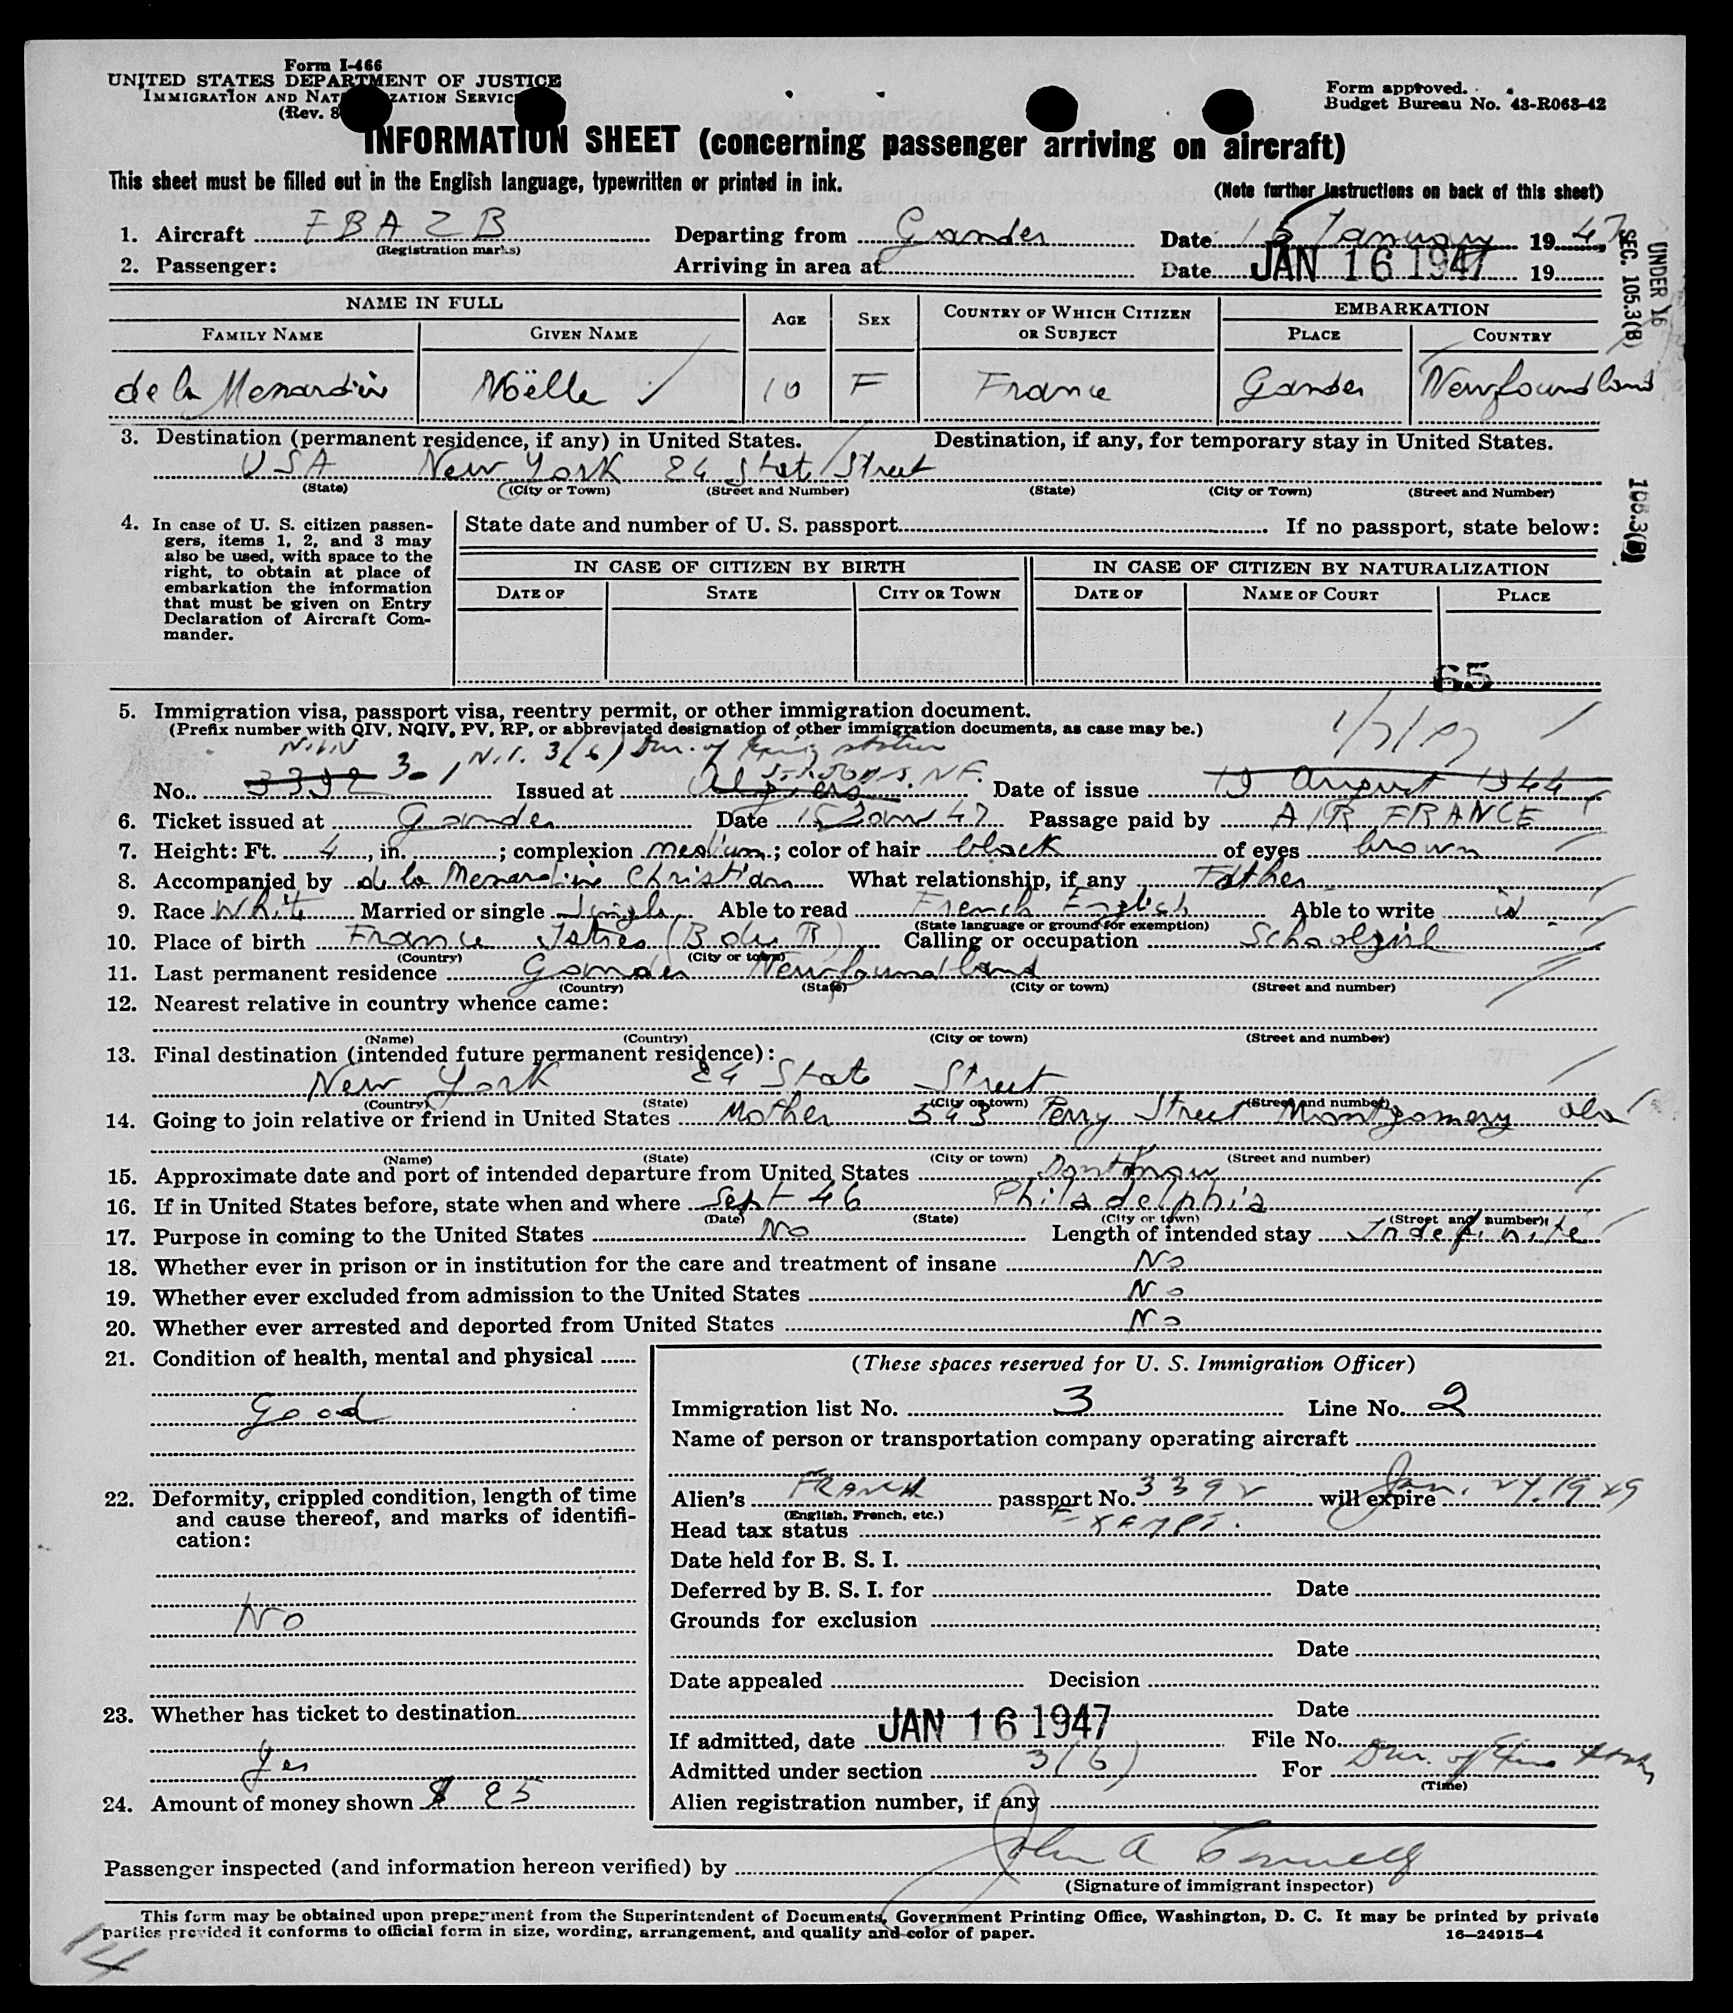 Form I-466
UNITED STATES DEPARTMENT OF JUSTICE
IMMIGRATION AND NAT ZATION SERVIC
(Rev. 8
Form approved.
Budget Bureau No. 43-R063-42
INFORMATION SHEET (concerning passenger arriving on aircraft)
This sheet must be filled out in the English language, typewritten or printed in ink.
(Note further instructions on back of this sheet)
1. Aircraft FBAZB Departing from Gander Date 15 January 1947
(Registration marks)
2. Passenger: Arriving in area at Date JAN 16 1947 19
UNDER 16
SEC. 105.3(B)
NAME IN FULL AGE SEX COUNTRY OF WHICH CITIZEN OR SUBJECT EMBARKATION
FAMILY NAME GIVEN NAME PLACE COUNTRY
de la Menardière Noëlle ✓ 10 F France Gander Newfoundland
3. Destination (permanent residence, if any) in United States. Destination, if any, for temporary stay in United States.
USA New York 24 Stat Street
(State) (City or Town) (Street and Number) (State) (City or Town) (Street and Number)
4. In case of U. S. citizen passen-
gers, items 1, 2, and 3 may
also be used, with space to the
right, to obtain at place of
embarkation the information
that must be given on Entry
Declaration of Aircraft Com-
mander.
State date and number of U. S. passport If no passport, state below:
IN CASE OF CITIZEN BY BIRTH IN CASE OF CITIZEN BY NATURALIZATION
DATE OF STATE CITY OR TOWN DATE OF NAME OF COURT PLACE
65
5. Immigration visa, passport visa, reentry permit, or other immigration document.
(Prefix number with QIV, NQIV, PV, RP, or abbreviated designation of other immigration documents, as case may be.)
No. 3392 30 Issued at Algiers Date of issue 19 August 1944
6. Ticket issued at Gander Date 15 Jan 47 Passage paid by AIR FRANCE
7. Height: Ft. 4, in. ; complexion medium; color of hair black of eyes brown
8. Accompanied by de la Menardiere Christian What relationship, if any Father
9. Race White Married or single Single Able to read French English Able to write id
(State language or ground for exemption)
10. Place of birth France Istres (B du R) Calling or occupation Schoolgirl
(Country) (City or town)
11. Last permanent residence Gander Newfoundland
(Country) (State) (City or town) (Street and number)
12. Nearest relative in country whence came:
(Name) (Country) (City or town) (Street and number)
13. Final destination (intended future permanent residence):
New York 24 State Street
(Country) (State) (City or town) (Street and number)
14. Going to join relative or friend in United States Mother 543 Perry Street Montgomery ala
(Name) (State) (City or town) (Street and number)
15. Approximate date and port of intended departure from United States Dont know
16. If in United States before, state when and where Sept 46 Philadelphia
(Date) (State) (City or town) (Street and number)
17. Purpose in coming to the United States No Length of intended stay Indefinite
18. Whether ever in prison or in institution for the care and treatment of insane No
19. Whether ever excluded from admission to the United States No
20. Whether ever arrested and deported from United States No
21. Condition of health, mental and physical
Good
22. Deformity, crippled condition, length of time
and cause thereof, and marks of identifi-
cation:
No
23. Whether has ticket to destination
Yes
24. Amount of money shown $ 25
(These spaces reserved for U. S. Immigration Officer)
Immigration list No. 3 Line No. 2
Name of person or transportation company operating aircraft
Alien's FRENCH passport No. 3392 will expire Jan. 24, 1949
(English, French, etc.)
Head tax status EXEMPT.
Date held for B. S. I.
Deferred by B. S. I. for Date
Grounds for exclusion
Date
Date appealed Decision
Date
If admitted, date JAN 16 1947 File No.
Admitted under section 3(6) For Dur. of
(Time)
Alien registration number, if any
Passenger inspected (and information hereon verified) by John A
(Signature of immigrant inspector)
This form may be obtained upon prepayment from the Superintendent of Documents, Government Printing Office, Washington, D. C. It may be printed by private
parties provided it conforms to official form in size, wording, arrangement, and quality and color of paper.
16—24915-4
14